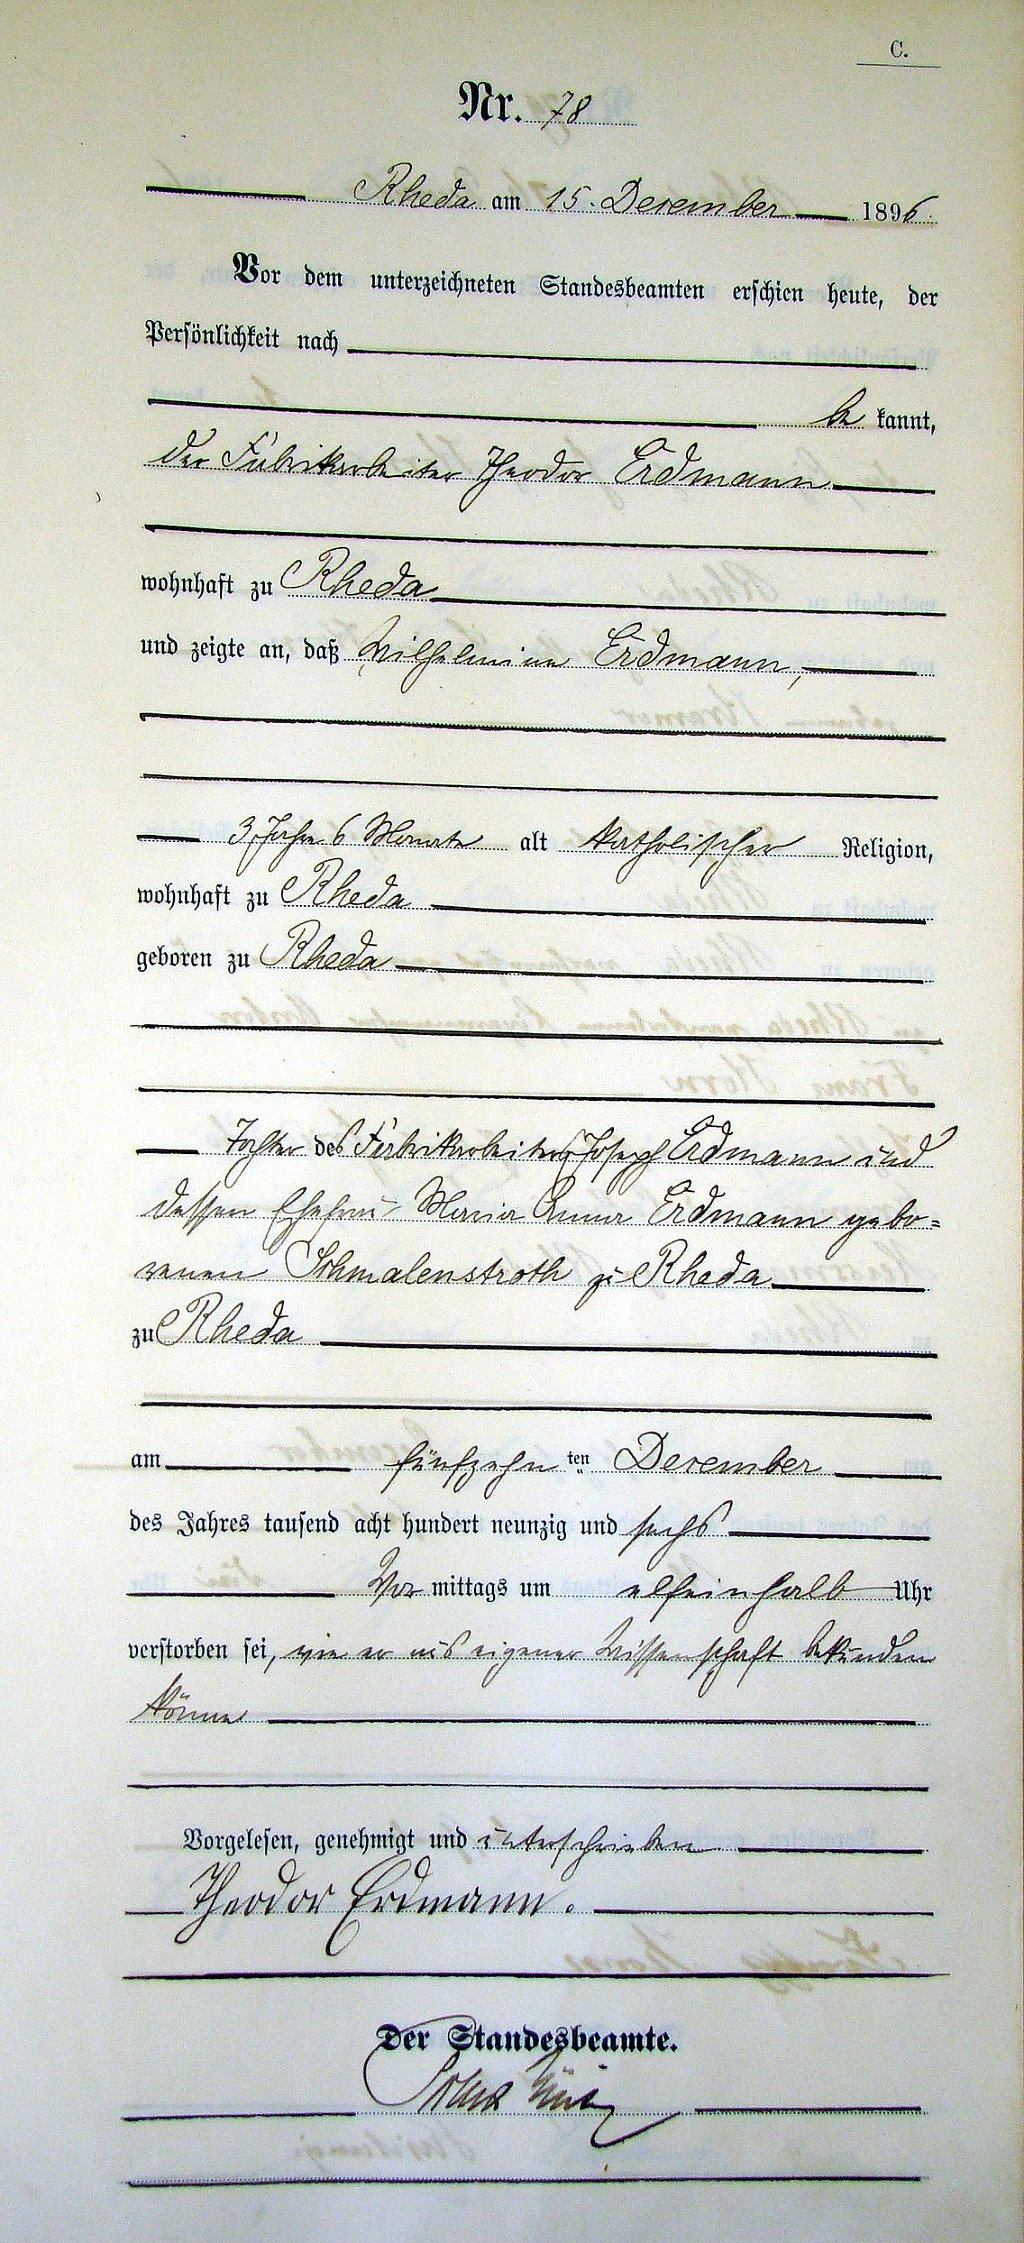 C.
Nr. 78
Rheda am 15. Dezember 1896.
Vor dem unterzeichneten Standesbeamten erschien heute, der
Persönlichkeit nach
be kannt,
der Fabrikarbeiter Theodor Erdmann
wohnhaft zu Rheda
und zeigte an, daß Wilhelmine Erdmann,
3 Jahre 6 Monate alt katholischer Religion,
wohnhaft zu Rheda
geboren zu Rheda
Tochter des Fabrikarbeiters Joseph Erdmann und
dessen Ehefrau Maria Anna Erdmann gebo=
renen Schmalenstroth zu Rheda
zu Rheda
am fünfzehn ten Dezember
des Jahres tausend acht hundert neunzig und sechs
Vor mittags um elfeinhalb Uhr
verstorben sei, wie er aus eigener Wissenschaft bekunden
könne
Vorgelesen, genehmigt und unterschrieben
Theodor Erdmann.
Der Standesbeamte.